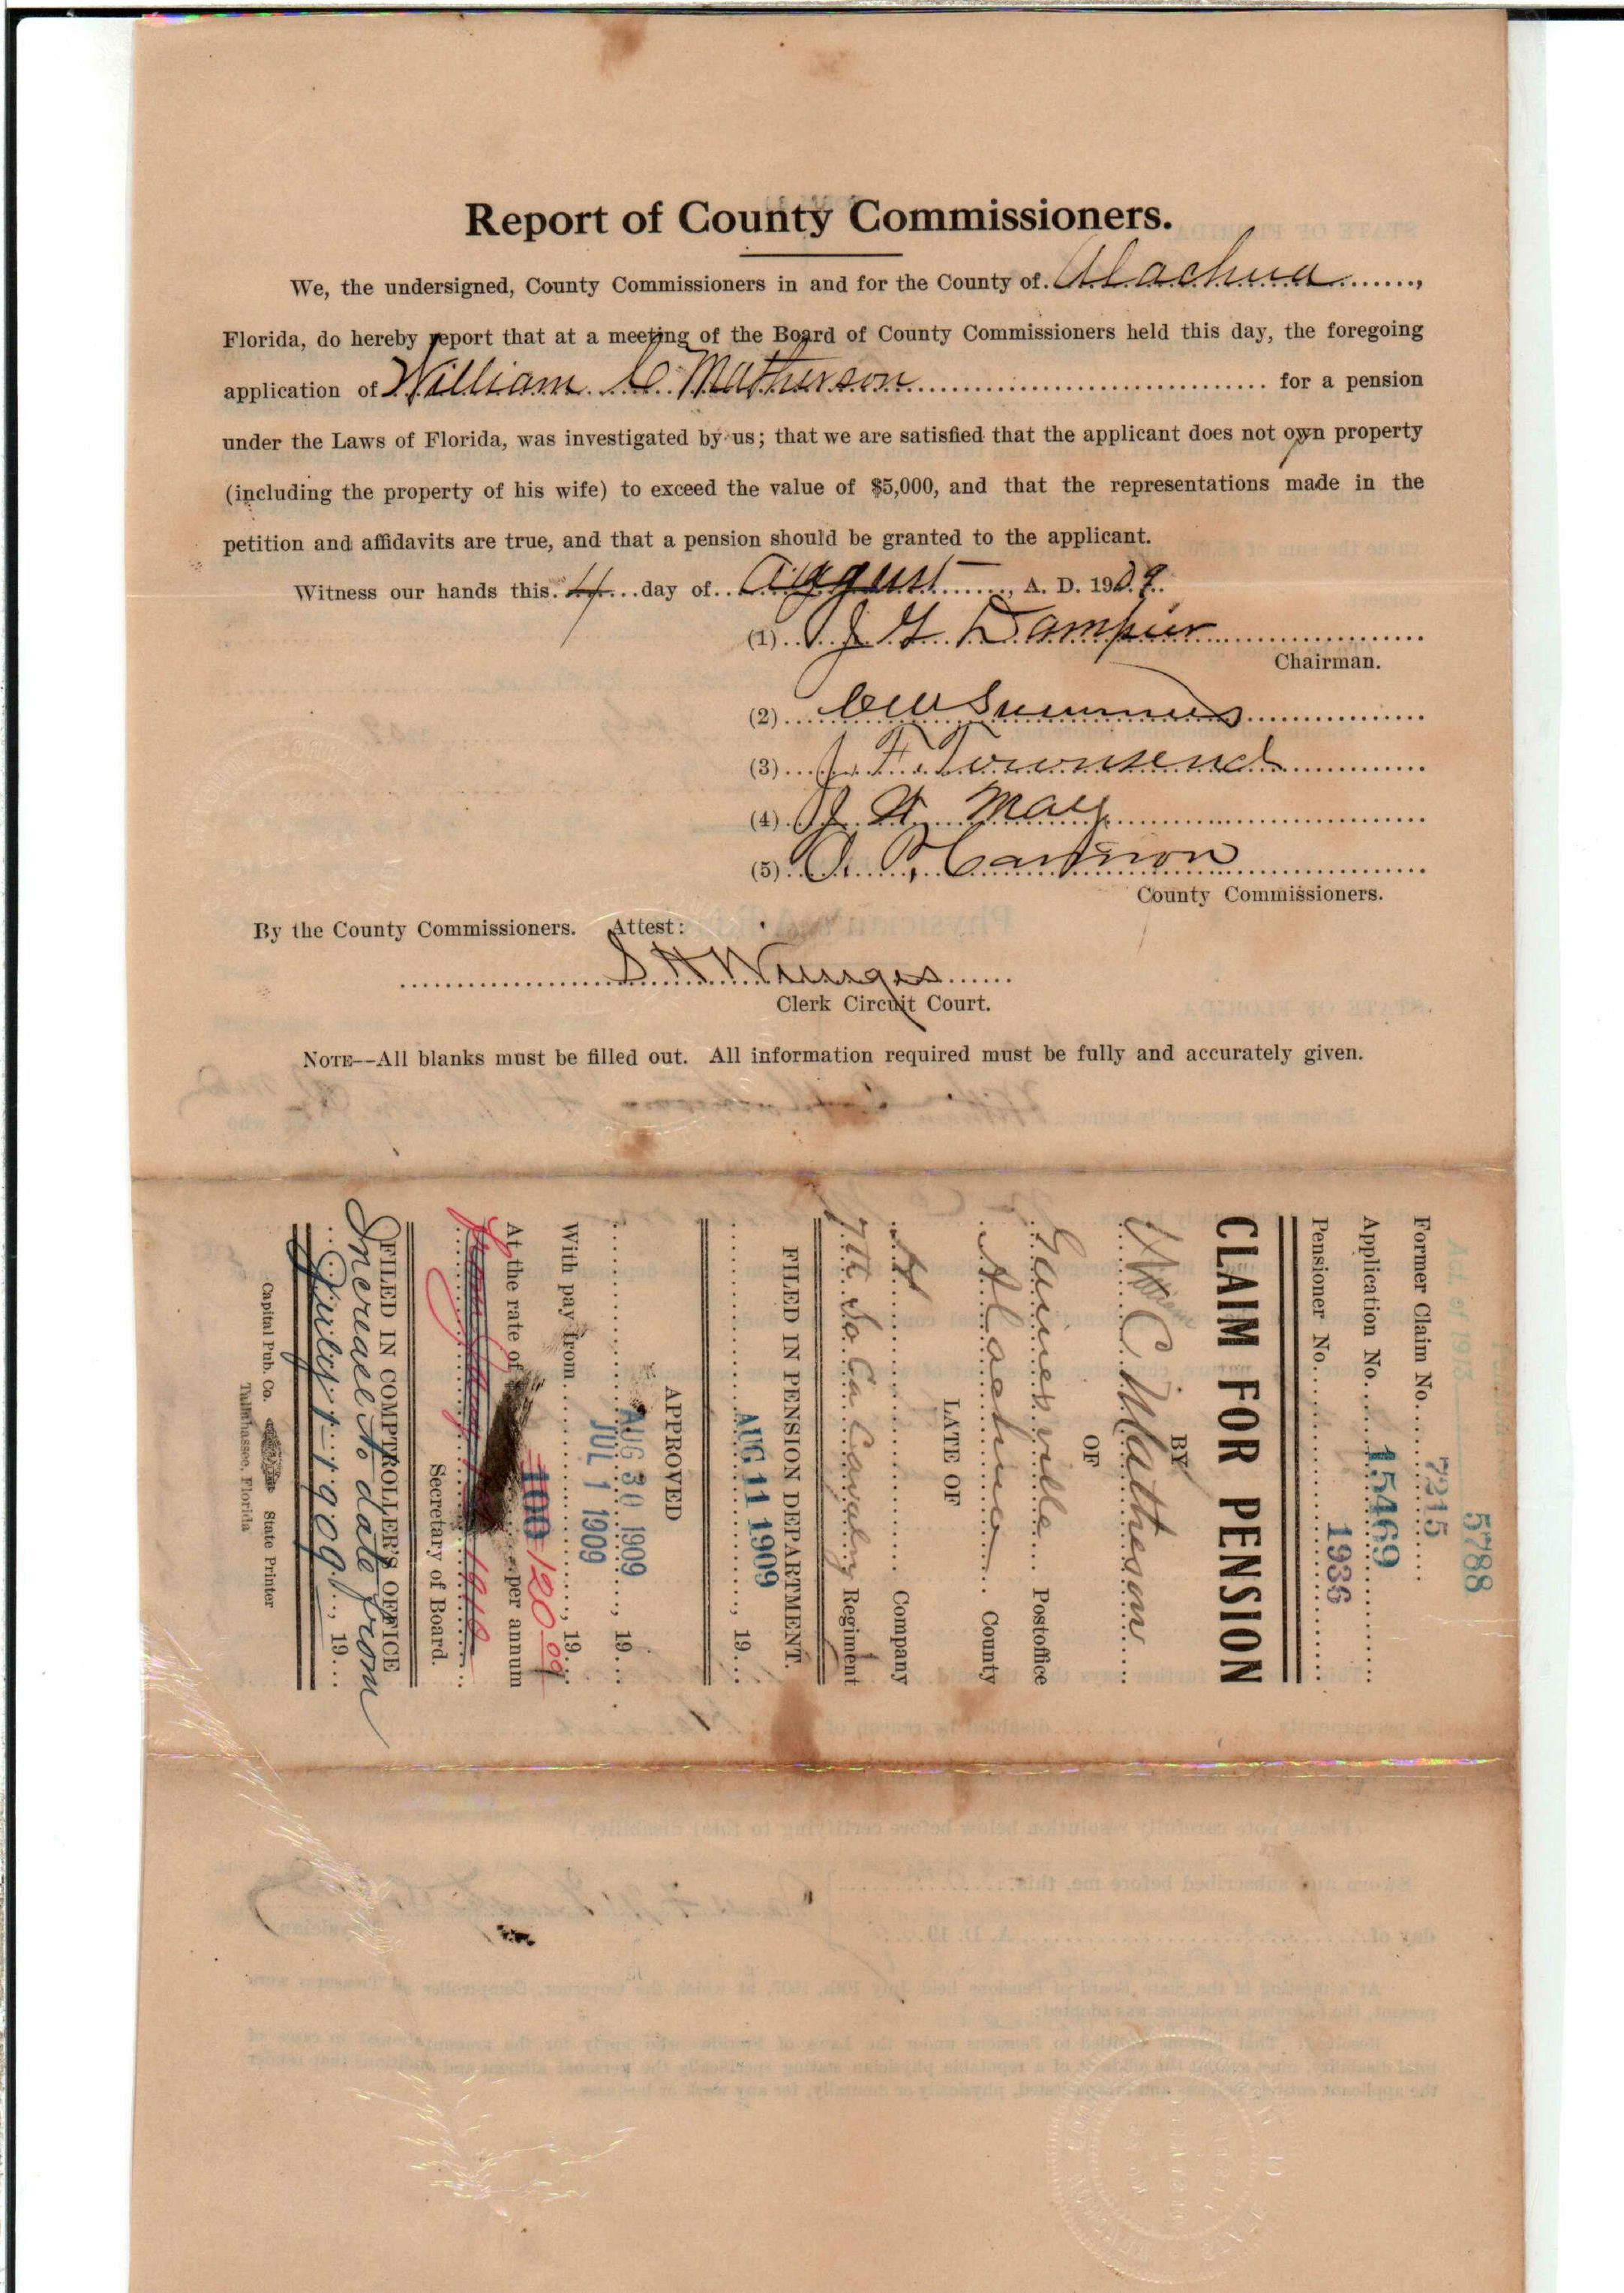 Report of County Commissioners.
We, the undersigned, County Commissioners in and for the County of Alachua,
Florida, do hereby report that at a meeting of the Board of County Commissioners held this day, the foregoing
application of William C. Matheson for a pension
under the Laws of Florida, was investigated by us; that we are satisfied that the applicant does not own property
(including the property of his wife) to exceed the value of $5,000, and that the representations made in the
petition and affidavits are true, and that a pension should be granted to the applicant.
Witness our hands this 4 day of August, A. D. 1909.
(1) J G Dampier
Chairman.
(2) CW Summers
(3) J. F. Townsend
(4) J W May
(5) A. P. Cannon
County Commissioners.
By the County Commissioners. Attest:
S H Wienges
Clerk Circuit Court.
NOTE—All blanks must be filled out. All information required must be fully and accurately given.
Act of 1913
5788
Former Claim No. 7215
Application No. 15469
Pensioner No. 1936
CLAIM FOR PENSION
BY
Wm C Matheson
OF
Gainesville Postoffice
Alachua County
LATE OF
Company
7th So Ca Cavalry Regiment
FILED IN PENSION DEPARTMENT.
AUG 11 1909, 19
APPROVED
AUG 30 1909, 19
With pay from JUL 1 1909, 19
At the rate of 100 120.00 per annum
Secretary of Board.
FILED IN COMPTROLLER'S OFFICE
Increase to date from
July 1-1909, 19
Capital Pub. Co. State Printer
Tallahassee, Florida